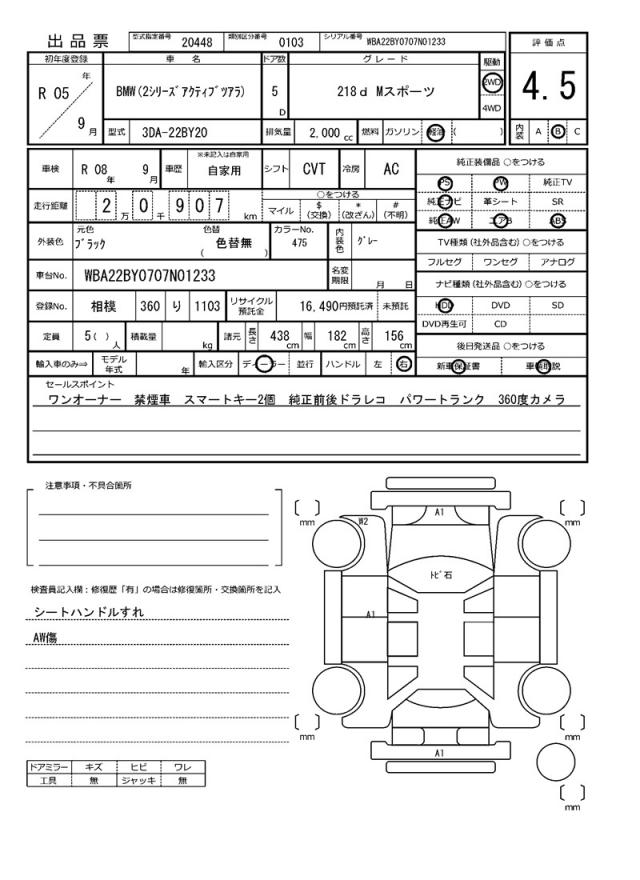 出品票
型式指定番号 20448 類別区分番号 0103 シリアル番号 WBA22BY0707N01233
初年度登録 車 名 ドア数 グレード 駆動 評価点
R 05 年 9 月 BMW(2シリーズアクティブツアラ) 5 D 218d Mスポーツ 2WD 4WD 4.5
型式 3DA-22BY20 排気量 2,000 cc 燃料 ガソリン 軽油 ( ) 内装 A B C
車検 R 08 年 9 月 車歴 ※未記入は自家用 自家用 シフト CVT 冷房 AC 純正装備品 ○をつける
PS PW 純正TV
走行距離 2 万 0 千 9 0 7 km ○をつける 純正ナビ 革シート SR
マイル $(交換) *(改ざん) #(不明) 純正AW エアB ABS
外装色 元色 ブラック 色替 色替無 ( ) カラーNo. 475 内装色 グレー TV種類(社外品含む)○をつける
フルセグ ワンセグ アナログ
車台No. WBA22BY0707N01233 名変期限 月 日 ナビ種類(社外品含む)○をつける
登録No. 相模 360 り 1103 リサイクル預託金 16,490円預託済 未預託 HDD DVD SD
DVD再生可 CD
定員 5( )人 積載量 kg 諸元 長さ 438 cm 幅 182 cm 高さ 156 cm 後日発送品 ○をつける
輸入車のみ⇒ モデル年式 年 輸入区分 ディーラー 並行 ハンドル 左 右 新車保証書 車輌取説
セールスポイント
ワンオーナー 禁煙車 スマートキー2個 純正前後ドラレコ パワートランク 360度カメラ
注意事項・不具合箇所
検査員記入欄:修復歴「有」の場合は修復箇所・交換箇所を記入
シートハンドルすれ
AW傷
ドアミラー キズ ヒビ ワレ
工具 無 ジャッキ 無
mm
A1
mm
W2
トビ石
A1
mm
mm
A1
mm